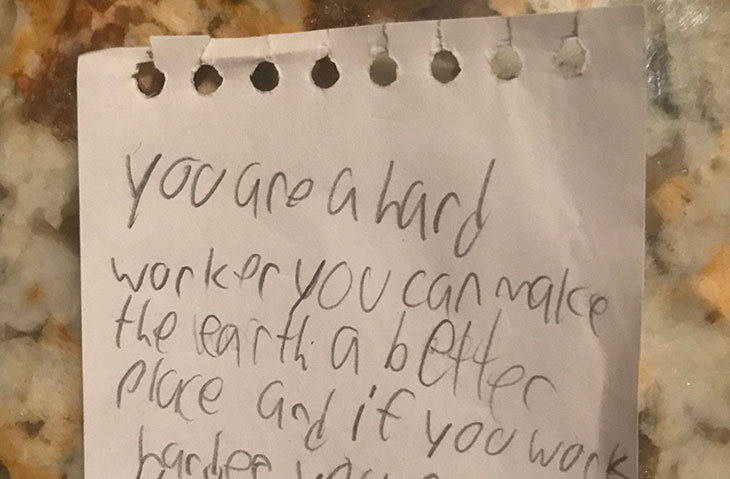 you are a hard
worker you can make
the earth a better
place and if you work
harder you